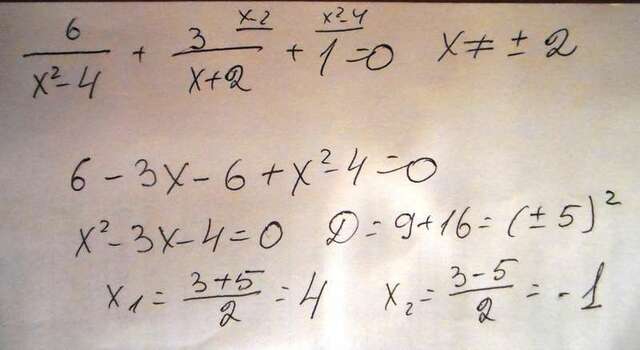 6/(x²-4) + 3^(x-2)/(x+2) + 1^(x²-4) = 0 x ≠ ± 2
6 - 3x - 6 + x² - 4 = 0
x² - 3x - 4 = 0 D = 9 + 16 = (± 5)²
x₁ = (3+5)/2 = 4 x₂ = (3-5)/2 = -1